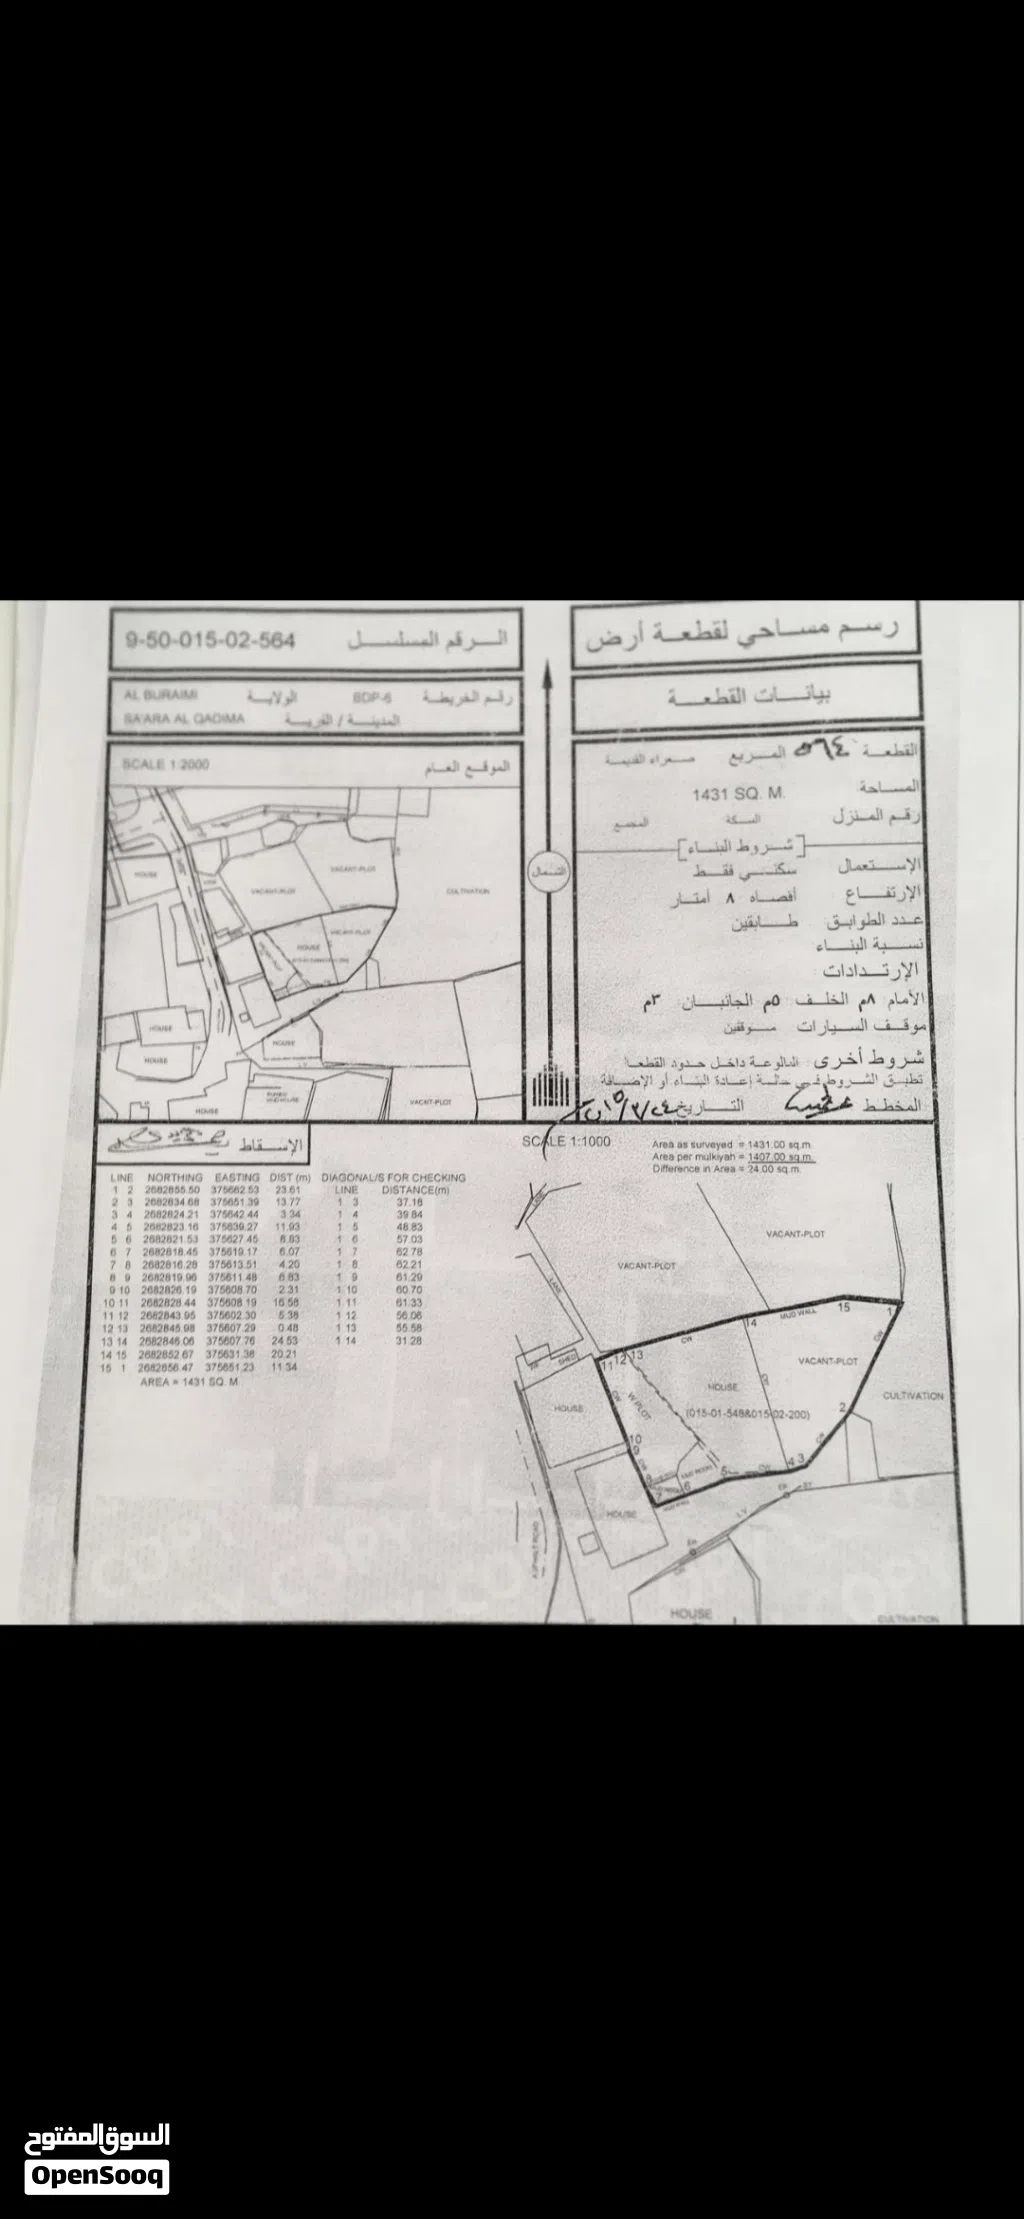 رسم مساحي لقطعة أرض
9-50-015-02-564 الرقم المسلسل
بيانات القطعة
AL BURAIMI الولاية BDP-6 رقم الخريطة
SA'ARA AL QADIMA المدينة / القرية
القطعة ٥٦٤ المربع صعراء القديمة
المساحة 1431 SQ. M.
رقم المنزل السكة المجمع
[شروط البناء]
الإستعمال سكني فقط
الإرتفاع أقصاه ٨ أمتار
عدد الطوابق طابقين
نسبة البناء
الإرتدادات
الأمام ٨م الخلف ٥م الجانبان ٣م
موقف السيارات موقفين
شروط أخرى : البالوعة داخل حدود القطعة
تطبق الشروط في حالة إعادة البناء أو الإضافة
المخطط التاريخ
الشمال
SCALE 1:2000 الموقع العام
HOUSE
VACANT-PLOT
VACANT-PLOT
CULTIVATION
HOUSE
VACANT-PLOT
HOUSE
HOUSE
HOUSE
HOUSE
VACNT-PLOT
الإسقاط
SCALE 1:1000
Area as surveyed = 1431.00 sq.m.
Area per mulkiyah = 1407.00 sq.m.
Difference in Area = 24.00 sq.m.
LINE NORTHING EASTING DIST (m) DIAGONAL/S FOR CHECKING
LINE DISTANCE(m)
1 2 2682855.50 375662.53 23.61 1 3 37.16
2 3 2682834.68 375651.39 13.77 1 4 39.84
3 4 2682824.21 375642.44 3.34 1 5 48.83
4 5 2682823.16 375639.27 11.93 1 6 57.03
5 6 2682821.53 375627.45 8.83 1 7 62.78
6 7 2682818.45 375619.17 6.07 1 8 62.21
7 8 2682816.28 375613.51 4.20 1 9 61.29
8 9 2682819.96 375611.48 6.83 1 10 60.70
9 10 2682826.19 375608.70 2.31 1 11 61.33
10 11 2682828.44 375608.19 16.58 1 12 56.06
11 12 2682843.95 375602.30 5.38 1 13 55.58
12 13 2682845.98 375607.29 0.48 1 14 31.28
13 14 2682846.06 375607.76 24.53
14 15 2682852.67 375631.38 20.21
15 1 2682856.47 375651.23 11.34
AREA = 1431 SQ. M.
VACANT-PLOT
VACANT-PLOT
LANE
MUD WALL
15
1
14
CW
11 12 13
SHED
VACANT-PLOT
HOUSE
(015-01-548&015-02-200)
CULTIVATION
HOUSE
W.PLOT
2
10
9
8
7
6
5
4 3
HOUSE
ASPHALT ROAD
L V
HOUSE
CULTIVATION
السوق المفتوح
OpenSooq